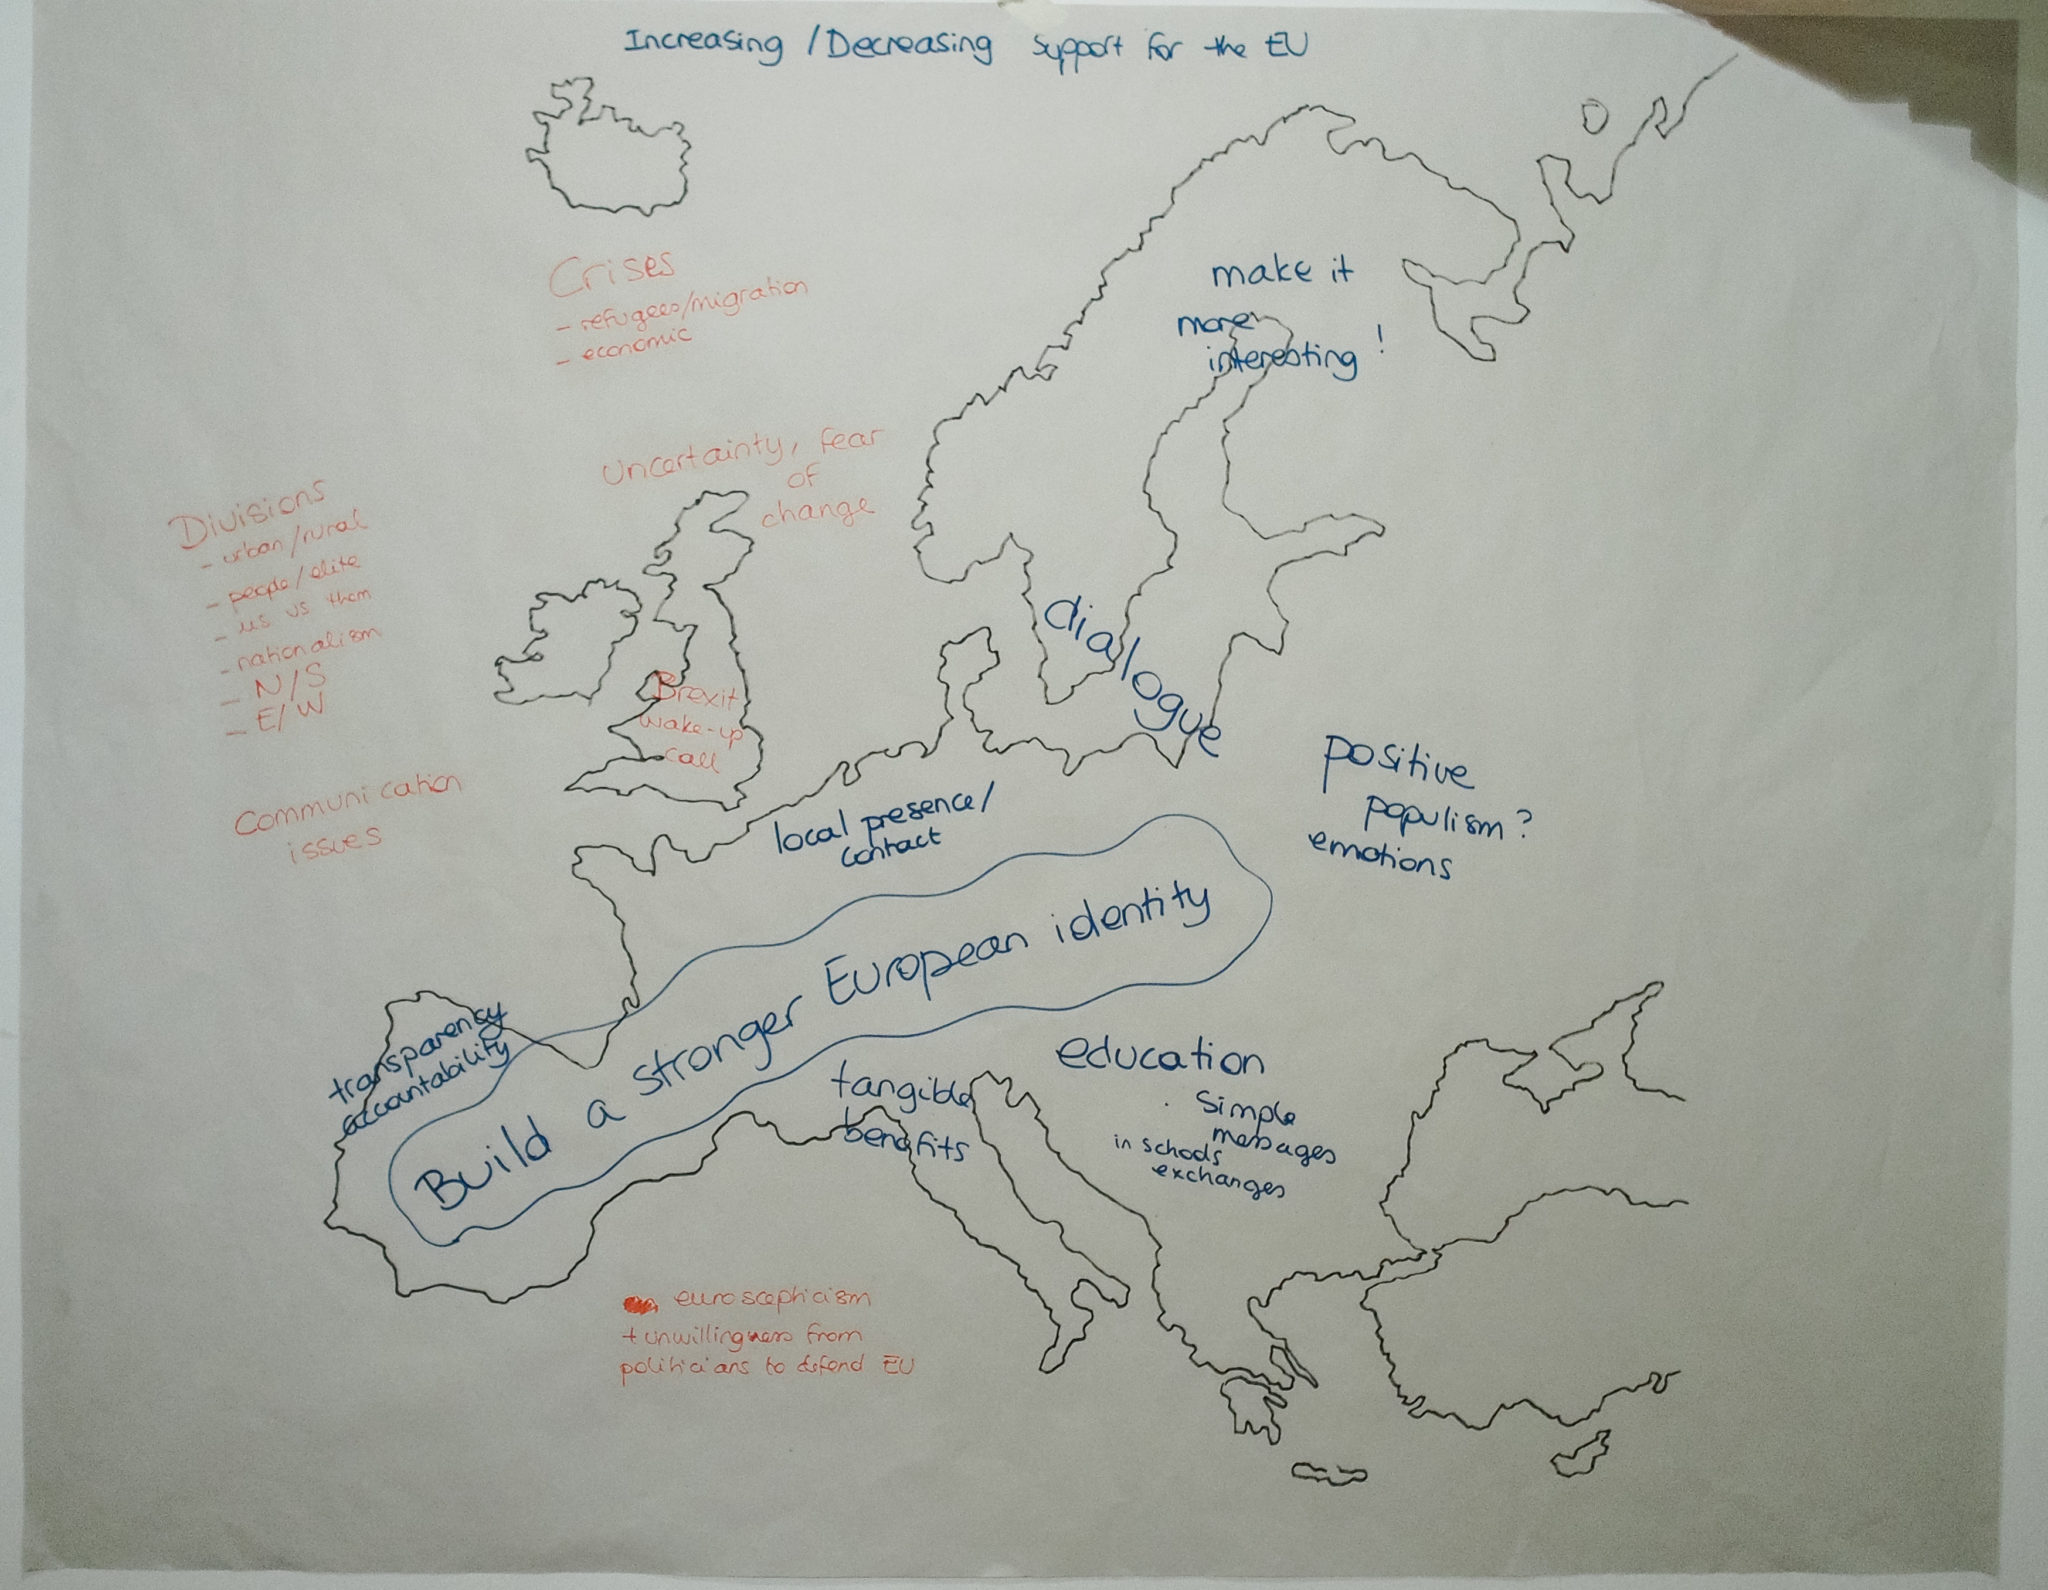 Increasing / Decreasing support for the EU
Crises
- refugees/migration
- economic
make it
more
interesting!
Uncertainty, fear
of
change
Divisions
- urban/rural
- people/elite
- us vs them
- nationalism
- N/S
- E/W
Communication
issues
Brexit
wake-up
call
dialogue
local presence/
contact
positive
populism?
emotions
Build a stronger European identity
transparency
accountability
tangible
benefits
education
simple
messages
in schools
exchanges
euroscepticism
+ unwillingness from
politicians to defend EU